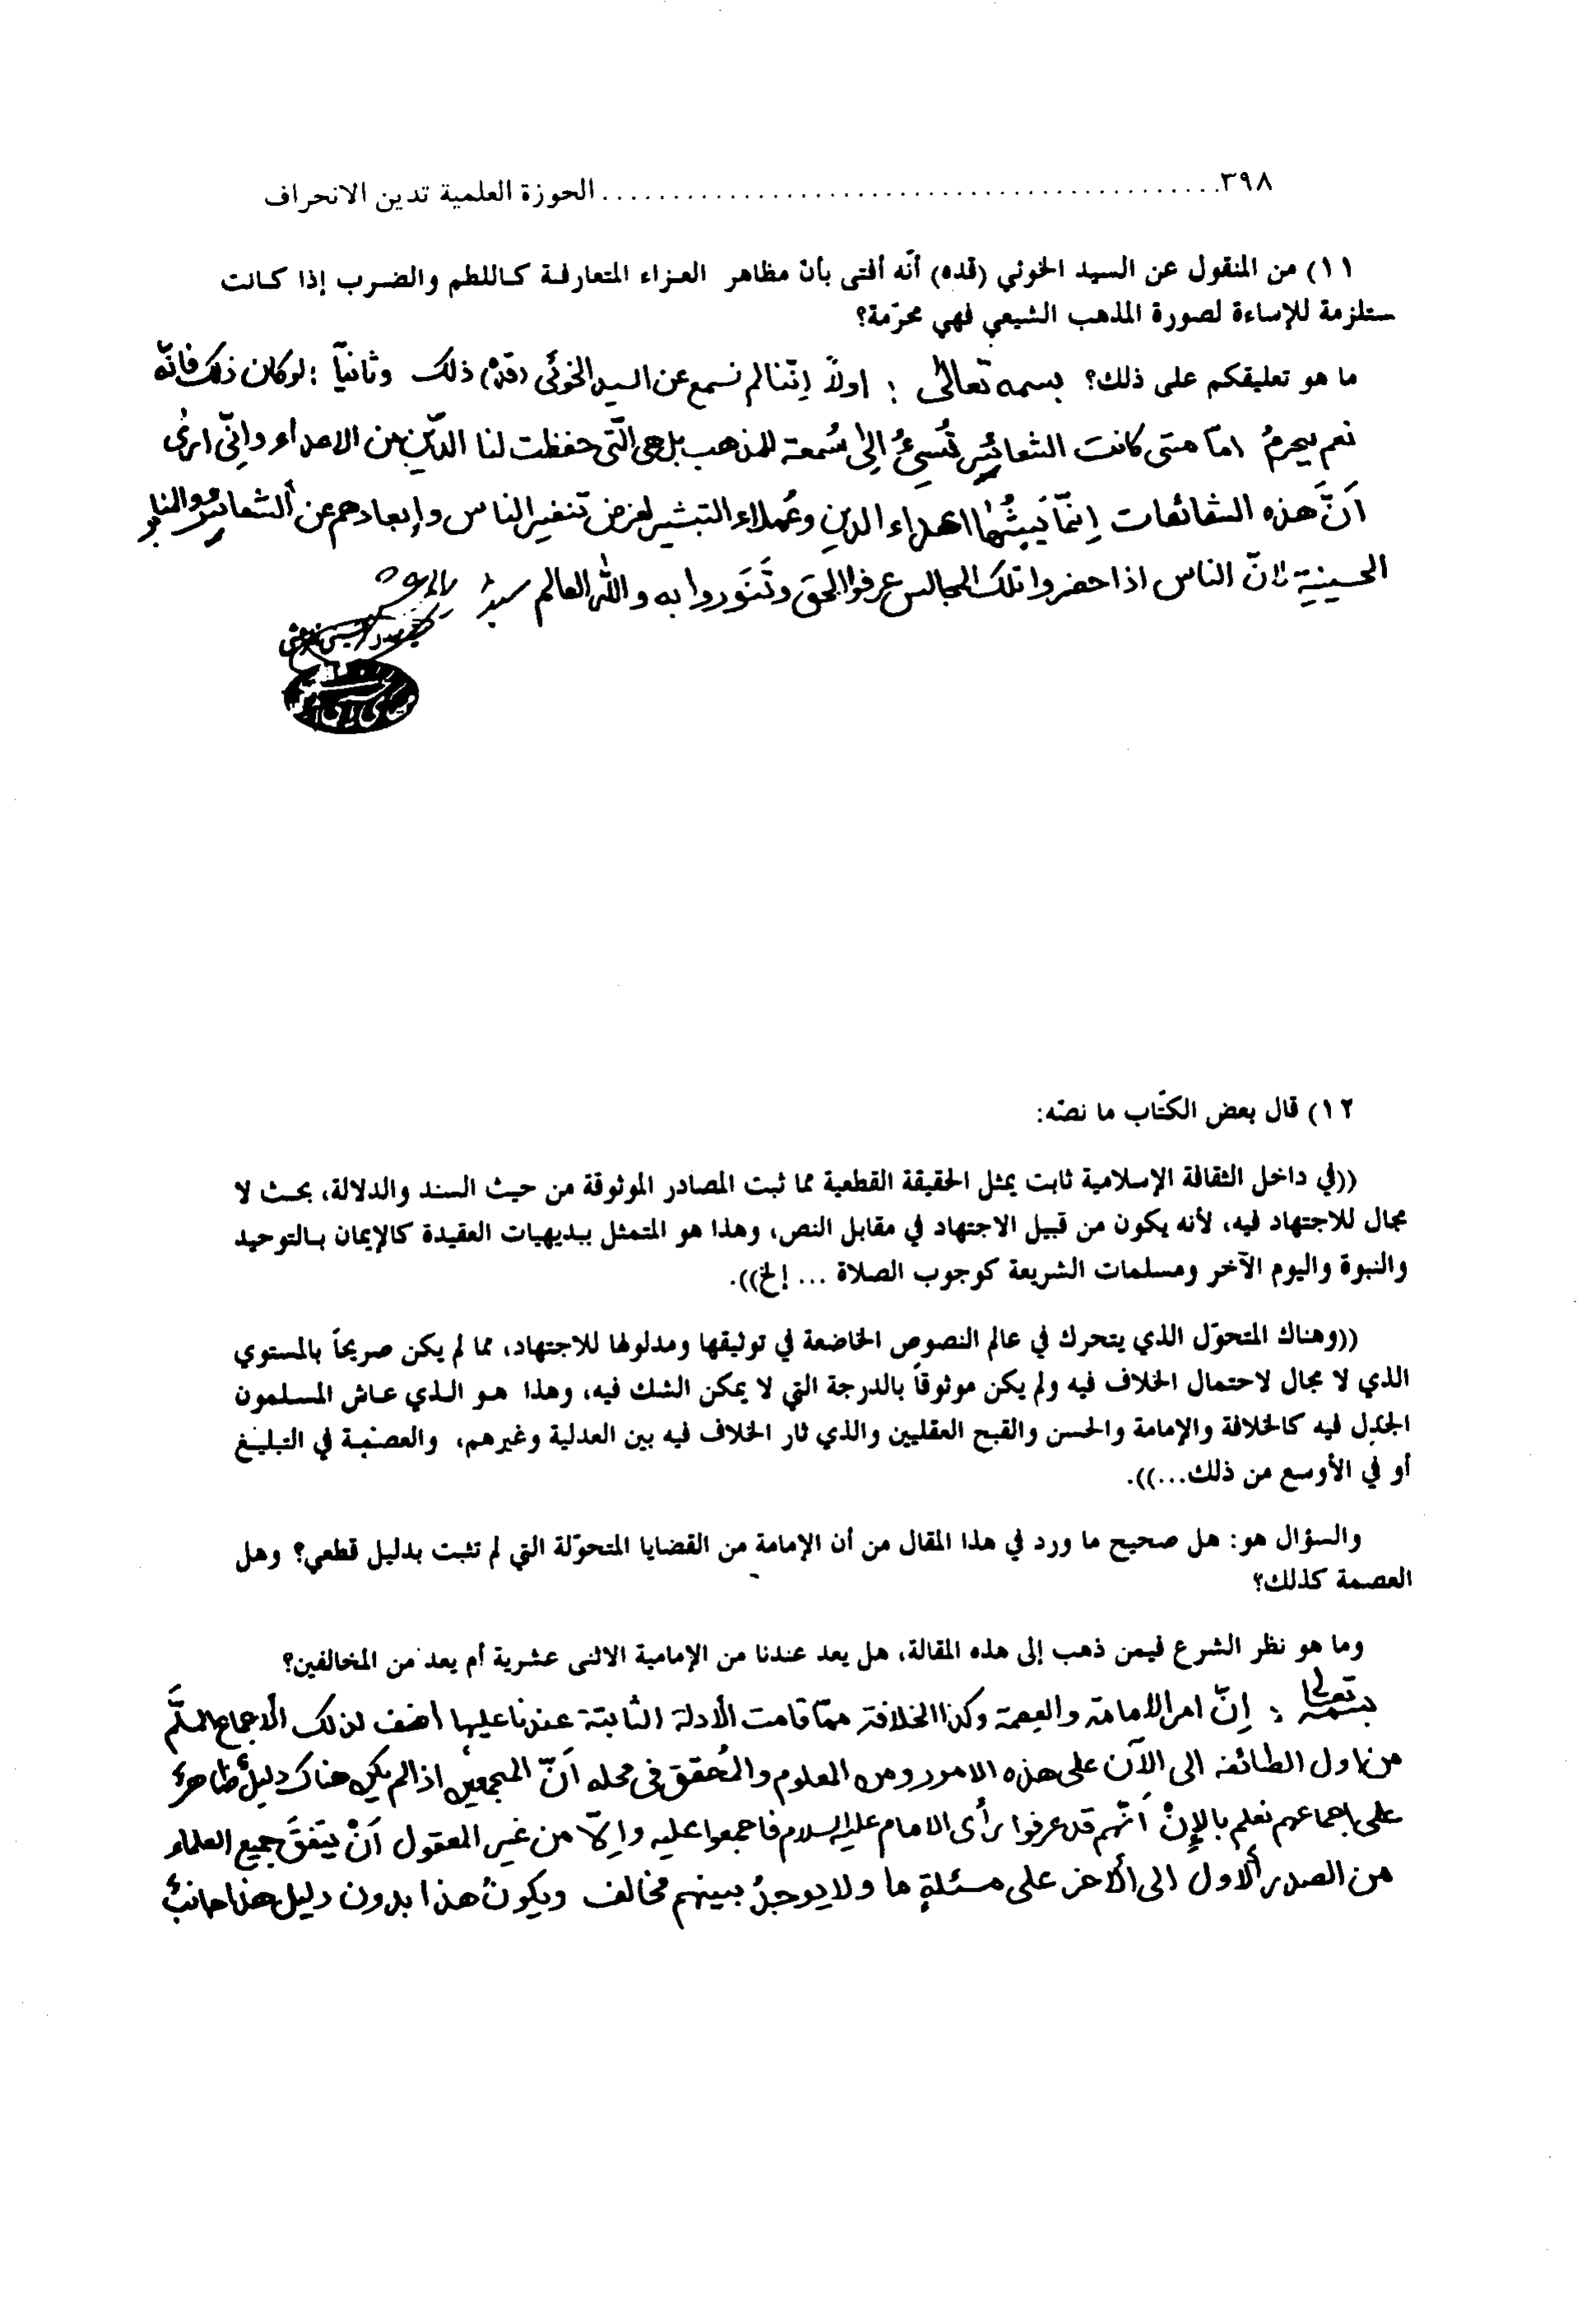 ٣٩٨............................................الحوزة العلمية تدين الانحراف
١١) من المنقول عن السيد الخوئي (قده) أنّه أفتى بأنّ مظاهر العزاء المتعارفة كاللطم والضرب إذا كانت
ستلزمة للإساءة لصورة المذهب الشيعي فهي محرّمة؟
ما هو تعليقكم على ذلك؟ بسمه تعالى : اولاً إنّنا لم نسمع عن السيد الخوئى (قده) ذلك وثانياً : لو كان ذلك فانّه
نعم يحرمُ امّا متى كانت الشعائر تُسيءُ إلى سُمعة المذهب بل هى الّتى حفظت لنا الدّين من الاعداء وانّى ارى
أنَّ هذه الشائعات إنمّا يَبثُّها اعداء الدين وعُملاء التبشير لغرض تنفير الناس وإبعادهم عن الشعائر والمنابر
الحسينية لانّ الناس اذا حضروا تلك المجالس عرفوا الحق وتَنَوَّروا به والله العالم
١٢) قال بعض الكتّاب ما نصّه:
((في داخل الثقافة الإسلامية ثابت يمثل الحقيقة القطعية مما ثبت المصادر الموثوقة من حيث السند والدلالة، بحث لا
مجال للاجتهاد فيه، لأنه يكون من قبيل الاجتهاد في مقابل النص، وهذا هو المتمثل ببديهيات العقيدة كالإيمان بالتوحيد
والنبوة واليوم الآخر ومسلمات الشريعة كوجوب الصلاة ... إلخ)).
((وهناك المتحوّل الذي يتحرك في عالم النصوص الخاضعة في توثيقها ومدلولها للاجتهاد، مما لم يكن صريحاً بالمستوي
الذي لا مجال لاحتمال الخلاف فيه ولم يكن موثوقاً بالدرجة التي لا يمكن الشك فيه، وهذا هو الذي عاش المسلمون
الجدل فيه كالخلافة والإمامة والحسن والقبح العقليين والذي ثار الخلاف فيه بين العدلية وغيرهم، والعصمة في التبليغ
أو في الأوسع من ذلك...)).
والسؤال هو: هل صحيح ما ورد في هذا المقال من أن الإمامة من القضايا المتحوّلة التي لم تثبت بدليل قطعي؟ وهل
العصمة كذلك؟
وما هو نظر الشرع فيمن ذهب إلى هذه المقالة، هل يعد عندنا من الإمامية الاثنى عشرية أم يعد من المخالفين؟
بسمه تعالى : إنّ امر الامامة والعصمة وكذا الخلافة ممّا قامت الأدلة الثابتة عندنا عليها اضف لذلك الاجماع المسلَّم
من اول الطائفة الى الآن على هذه الامور ومن المعلوم والمُحقق فى محله أنّ المجمعين اذا لم يكن هناك دليلٌ ظاهرٌ
على اجماعهم نعلم بالإنْ أنّهم قد عرفوا رأى الامام عليه السلام فاجمعوا عليه وإلّا من غير المعقول أنْ يتفقَ جميع العلماء
من الصدر الاول الى الآخر على مسئلةٍ ما ولا يوجدُ بينهم مخالف ويكونُ هذا بدون دليل هذا جانبٌ